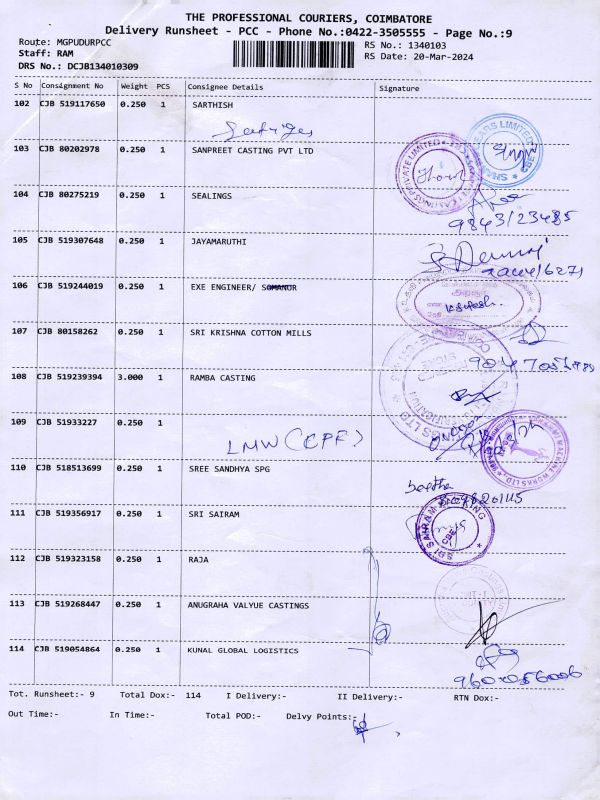 THE PROFESSIONAL COURIERS, COIMBATORE
Delivery Runsheet - PCC - Phone No.:0422-3505555 - Page No.:9
Route: MGPUDURPCC
RS No.: 1340103
Staff: RAM
RS Date: 20-Mar-2024
DRS No.: DCJB134010309
S No Consignment No Weight PCS Consignee Details Signature
102 CJB 519117650 0.250 1 SARTHISH
103 CJB 80202978 0.250 1 SANPREET CASTING PVT LTD
104 CJB 80275219 0.250 1 SEALINGS
9843123485
105 CJB 519307648 0.250 1 JAYAMARUTHI
106 CJB 519244019 0.250 1 EXE ENGINEER/
107 CJB 80158262 0.250 1 SRI KRISHNA COTTON MILLS
108 CJB 519239394 3.000 1 RAMBA CASTING
109 CJB 51933227 0.250 1
LMW (CPF)
110 CJB 518513699 0.250 1 SREE SANDHYA SPG
111 CJB 519356917 0.250 1 SRI SAIRAM
112 CJB 519323158 0.250 1 RAJA
113 CJB 519268447 0.250 1 ANUGRAHA VALYUE CASTINGS
114 CJB 519054864 0.250 1 KUNAL GLOBAL LOGISTICS
Tot. Runsheet:- 9 Total Dox:- 114 I Delivery:- II Delivery:- RTN Dox:-
Out Time:- In Time:- Total POD:- Delvy Points:-